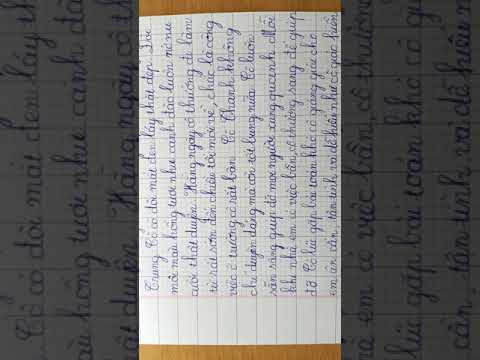 Trung. Cô có đôi mắt đen láy thật đẹp. Đôi
môi màu hồng tươi như cánh đào luôn nở nụ
cười thật duyên. Hằng ngày cô thường đi làm
từ rất sớm đến chiều tối mới về, chắc là công
việc ở trường cô rất bận. Cô Thanh không
chỉ duyên dáng mà còn tốt bụng nữa. Cô luôn
sẵn sàng giúp đỡ mọi người xung quanh. Mỗi
khi nhà em có việc bận, cô thường sang để giúp
đỡ. Có lúc gặp bài toán khó cô giảng giải cho
em ân cần, tận tình và dễ hiểu như cô giáo hiền